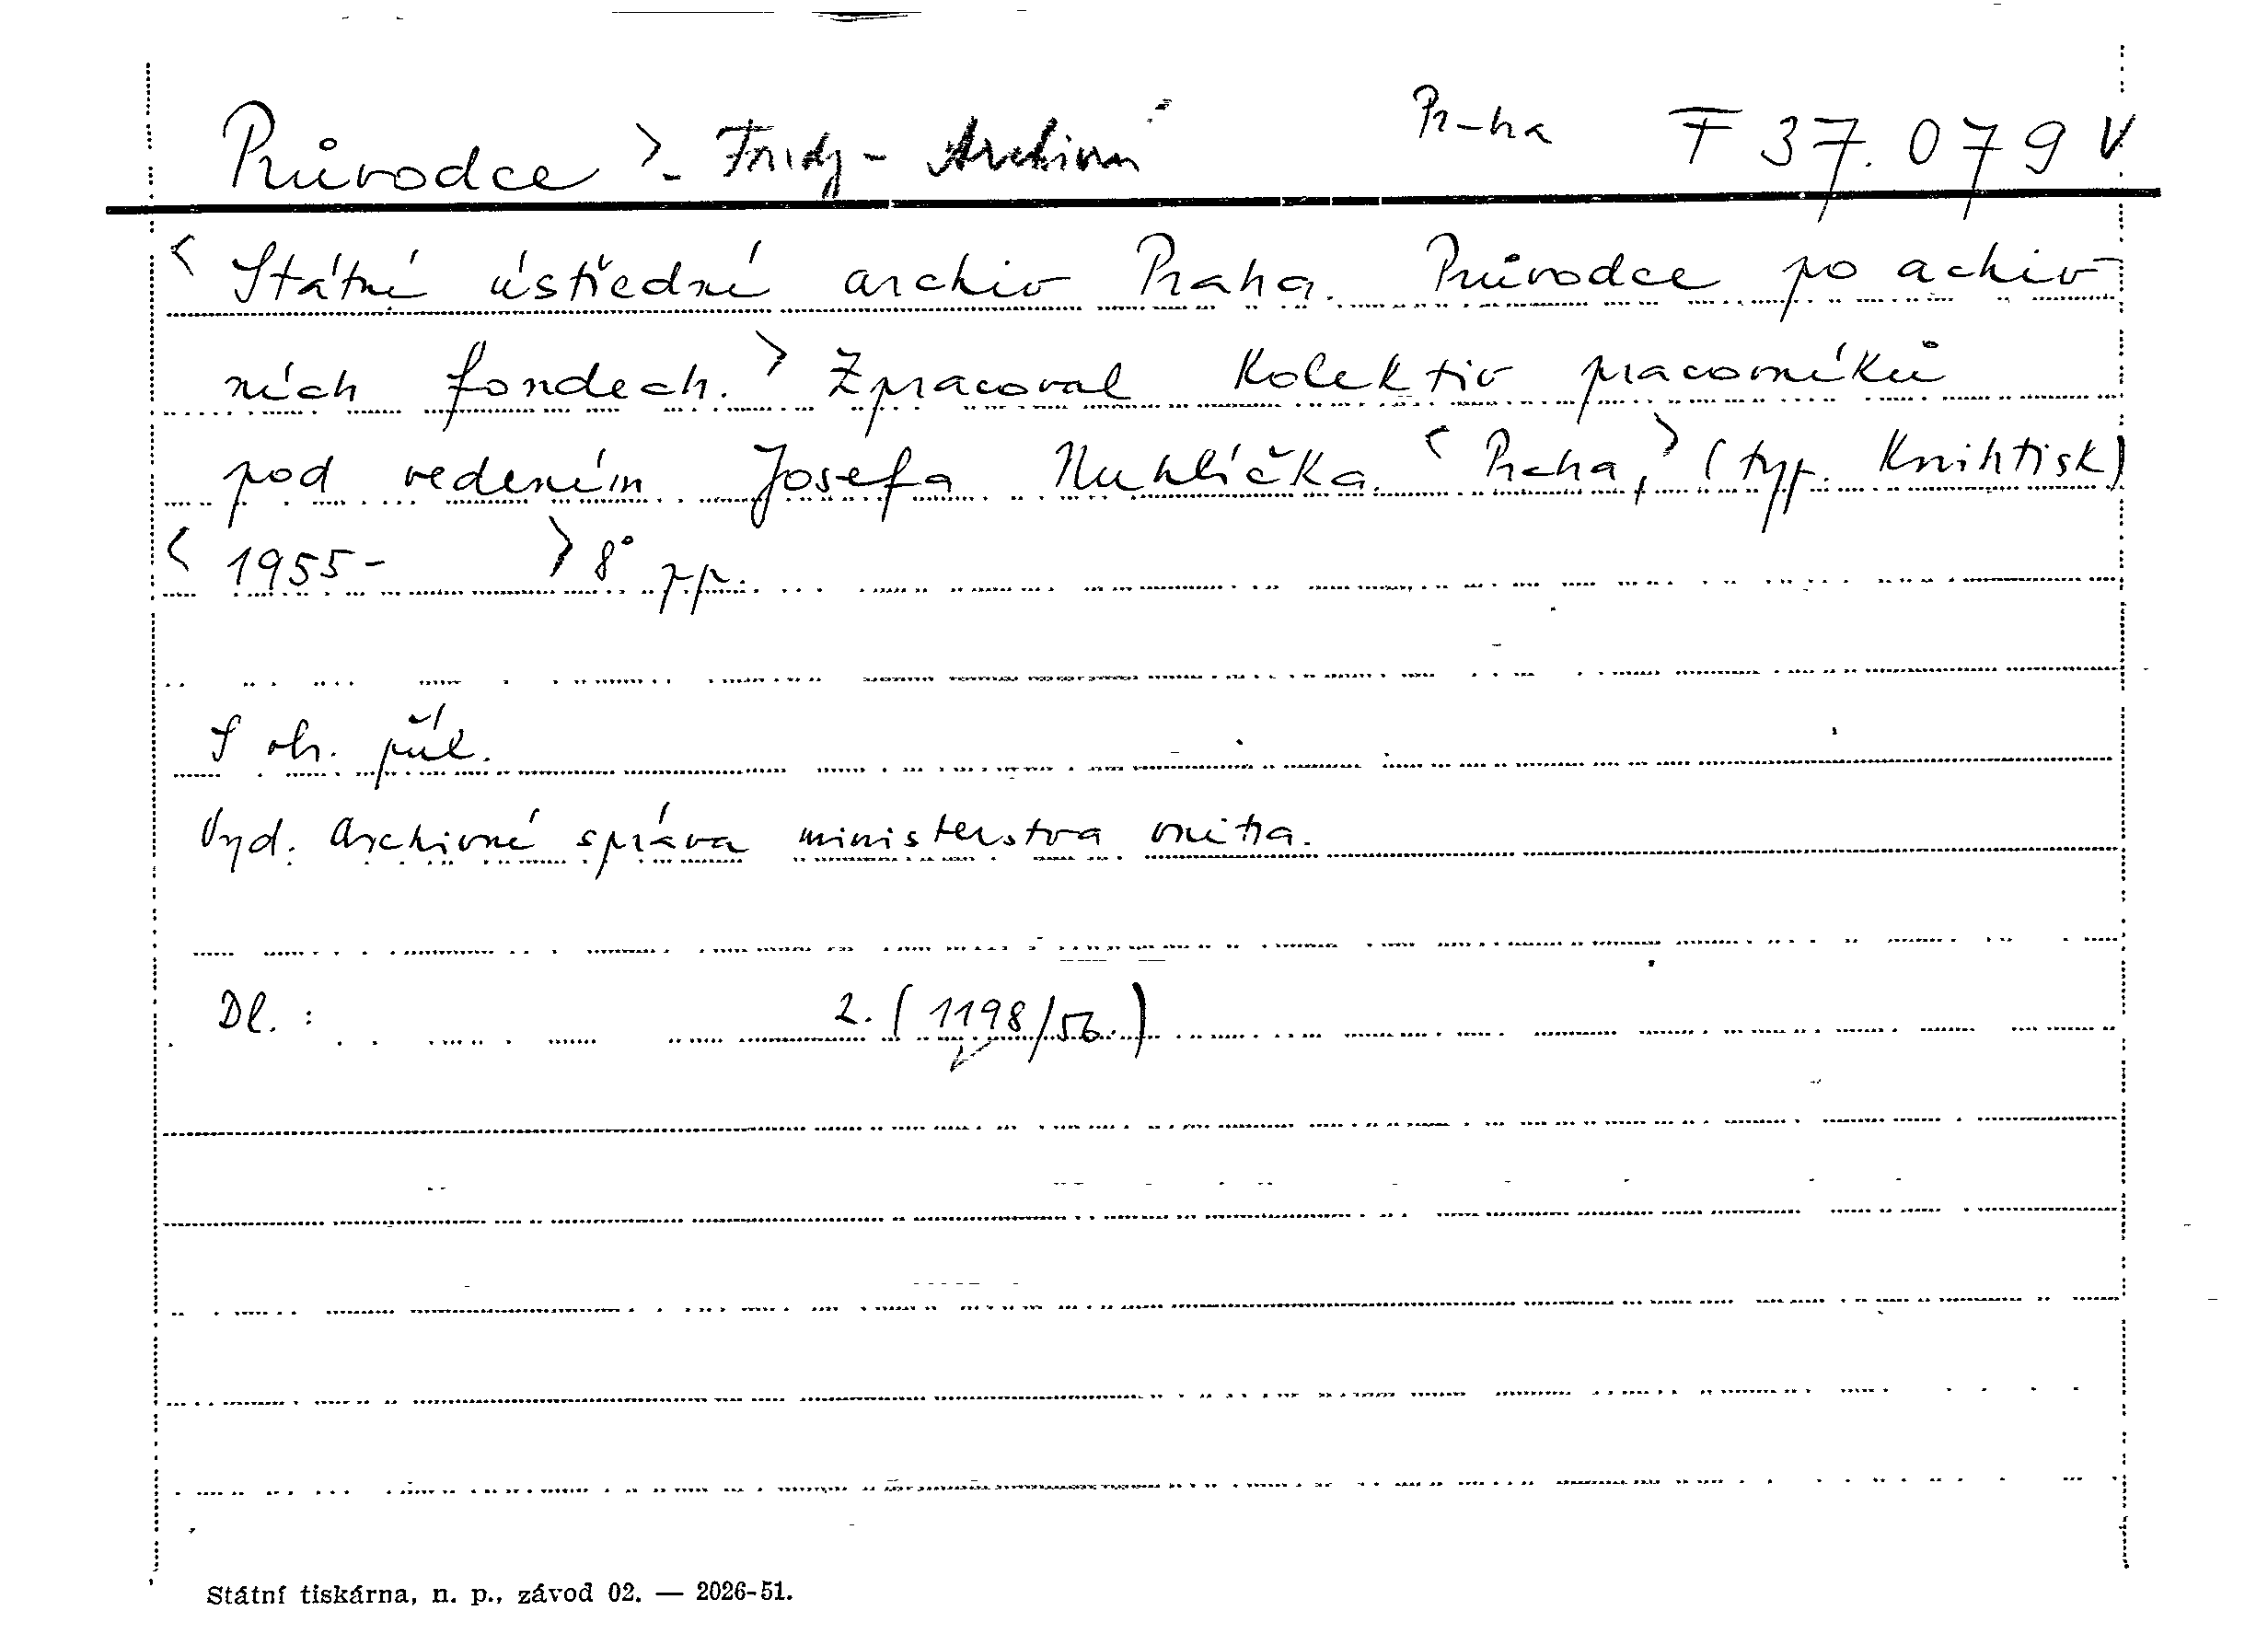 Průvodce >- Fondy - Archivní Praha F 37.079 V
< Státní ústřední archiv Praha. Průvodce po achiv-
ních fondech. > Zpracoval Kolektiv pracovníků
pod vedením Josefa Nuhlíčka. < Praha, > (typ. Knihtisk)
< 1955- > 8° pp.
S obr. příl.
Vyd. Archivní správa ministerstva vnitra.
Dl. : 2. (1198/56.)
Státní tiskárna, n. p., závod 02. — 2026-51.